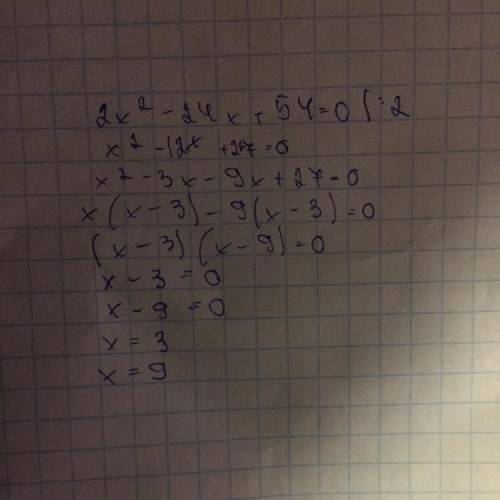 2x² - 24x + 54 = 0 | : 2
x² - 12x + 27 = 0
x² - 3x - 9x + 27 = 0
x(x - 3) - 9(x - 3) = 0
(x - 3)(x - 9) = 0
x - 3 = 0
x - 9 = 0
x = 3
x = 9